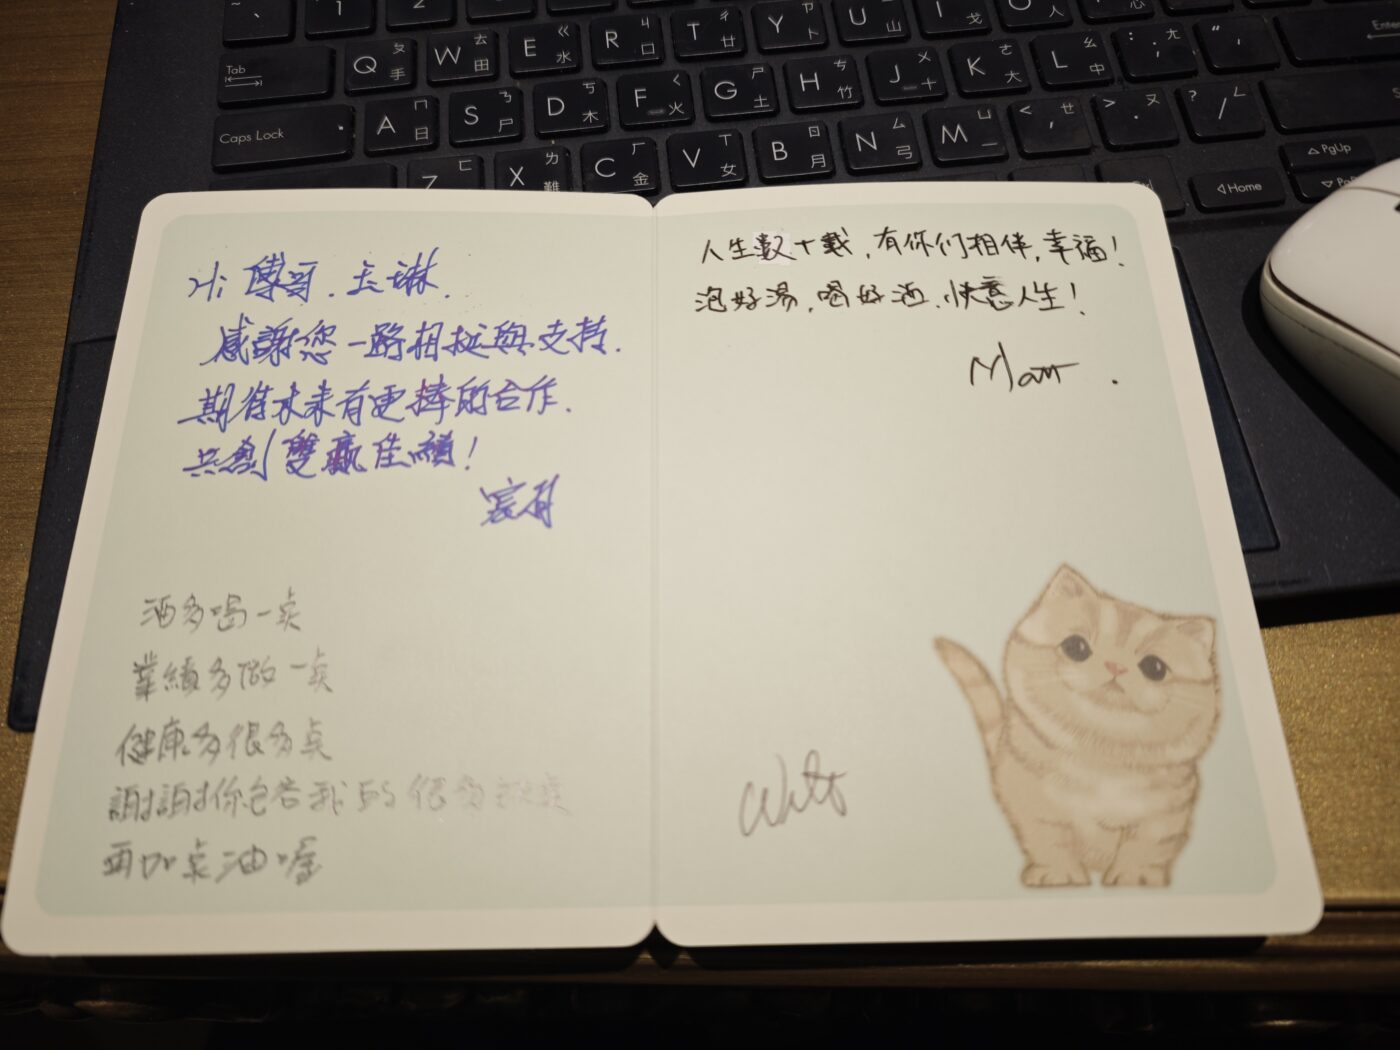 Hi 傅哥、玉琳、
感謝您一路相挺與支持、
期待未來有更棒的合作、
共創雙贏佳績！
酒多喝一桌
業績多做一桌
健康多很多桌
謝謝你包容我的很多
再加桌油喔
人生数十載，有你们相伴，幸福！
泡好湯，喝好酒、快意人生！
Matt.
~
、
1
2
Tab
Q ㄆ 手
W ㄊ 田
E ㄍ 水
R ㄐ 口
T ㄔ 廿
Y ㄗ 卜
U 山
I 戈
O 人
Enter
Caps Lock
A ㄇ 日
S ㄋ 尸
D ㄎ 木
F ㄑ 火
G ㄕ 土
H ㄘ 竹
J ㄨ 十
K ㄜ 大
L ㄠ 中
: ; ㄤ
" '
Z ㄈ
X ㄌ 難
C ㄏ 金
V ㄒ 女
B ㄖ 月
N ㄙ 弓
M ㄩ 一
< , ㄝ
> . ㄡ
? / ㄥ
PgUp
Home